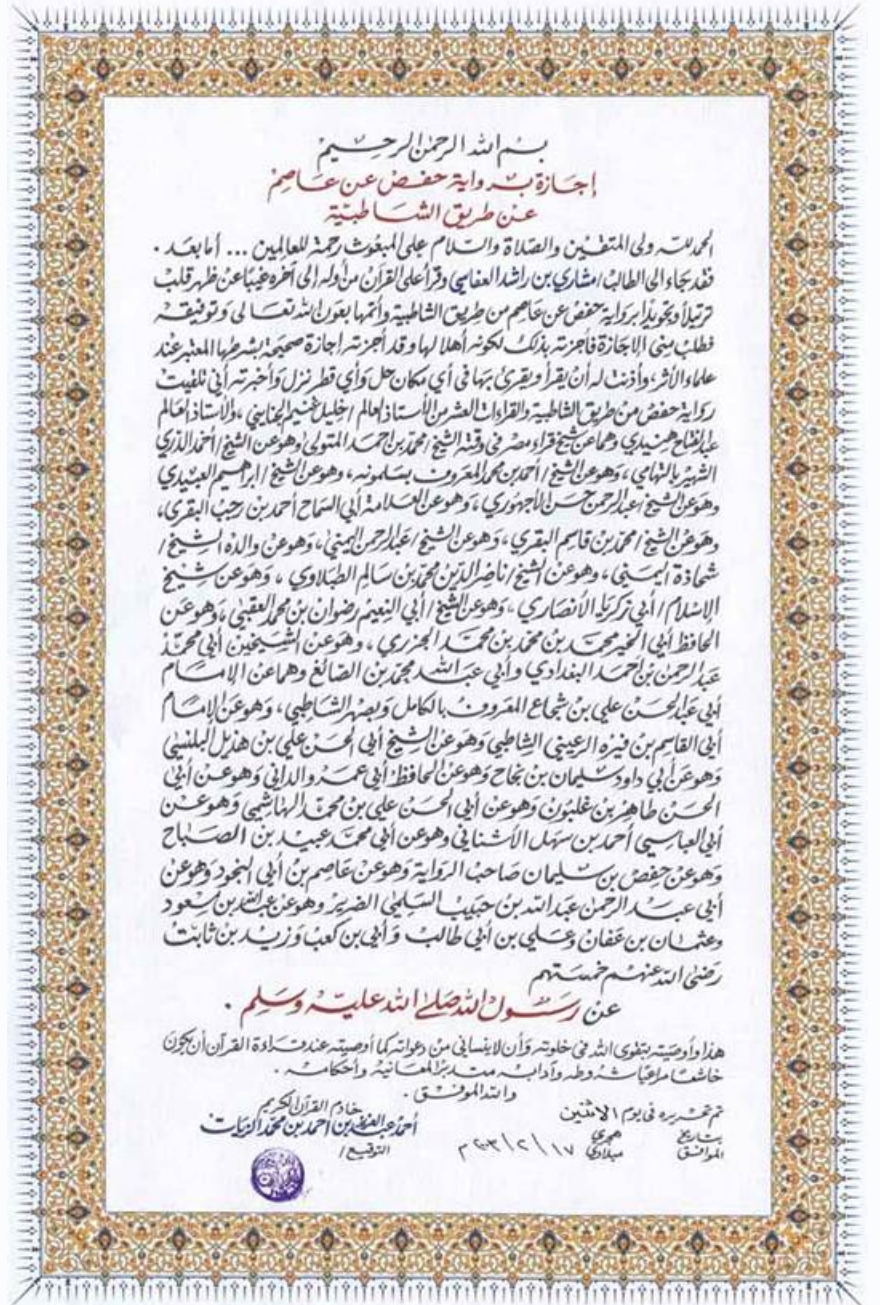 بسم الله الرحمن الرحيم
إجازة برواية حفص عن عاصم
عن طريق الشاطبية
الحمد لله ولي المتقين والصلاة والسلام على المبعوث رحمة للعالمين ... أما بعد .
فقد جاء إلى الطالب / مشاري بن راشد العفاسي وقرأ علي القرآن من أوله إلى آخره غيبًا عن ظهر قلب
ترتيلاً وتجويدًا برواية حفص عن عاصم من طريق الشاطبية وأتمها بعون الله تعالى وتوفيقه
فطلب مني الإجازة فأجزته بذلك لكونه أهلا لها وقد أجزته إجازة صحيحة بشرطها المعتبر عند
علماء الأثر، وأذنت له أن يقرأ ويقرئ بها في أي مكان حل وأي قطر نزل وأخبرته أني تلقيت
رواية حفص من طريق الشاطبية والقراءات العشر من الأستاذ العالم / خليل غنيم الجنايني ، والأستاذ العالم
عبدالفتاح هنيدي وهما عن شيخ قراء مصر في وقته الشيخ / محمد بن احمد المتولي وهو عن الشيخ / أحمد الدري
الشهير بالتهامي ، وهو عن الشيخ / أحمد بن محمد المعروف بسلمونه ، وهو عن الشيخ / ابراهيم العبيدي
وهو عن الشيخ / عبدالرحمن حسن الأجهوري ، وهو عن العلامة أبي السماح أحمد بن رجب البقري ،
وهو عن الشيخ / محمد بن قاسم البقري ، وهو عن الشيخ / عبدالرحمن اليمني ، وهو عن والده الشيخ /
شحاذة اليمني ، وهو عن الشيخ / ناصر الدين محمد بن سالم الطبلاوي ، وهو عن شيخ
الإسلام / أبي زكريا الأنصاري ، وهو عن الشيخ / أبي النعيم رضوان بن محمد العقبي ، وهو عن
الحافظ أبي الخير محمد بن محمد بن محمد الجزري ، وهو عن الشيخين أبي محمد
عبد الرحمن بن أحمد البغدادي وأبي عبد الله محمد بن الصائغ وهما عن الإمام
أبي عبدالحسن علي بن شجاع المعروف بالكامل وبصهر الشاطبي ، وهو عن الإمام
أبي القاسم بن فيره الرعيني الشاطبي وهو عن الشيخ أبي الحسن علي بن هذيل البلنسي
وهو عن أبي داود سليمان بن نجاح وهو عن الحافظ أبي عمرو الداني وهو عن أبي
الحسن طاهر بن غلبون وهو عن أبي الحسن علي بن محمد الهاشمي وهو عن
أبي العباسي أحمد بن سهل الأشناني وهو عن أبي محمد عبيد بن الصباح
وهو عن حفص بن سليمان صاحب الرواية وهو عن عاصم بن أبي النجود وهو عن
أبي عبد الرحمن عبد الله بن حبيب السلمي الضرير وهو عن عبدالله بن مسعود
وعثمان بن عفان وعلي بن أبي طالب وأبي بن كعب وزيد بن ثابت
رضي الله عنهم خمستهم
عن رسول الله صلى الله عليه وسلم .
هذا وأوصيته بتقوى الله في خلوته وأن لا ينساني من دعواته كما أوصيته عند قراءة القرآن أن يكون
خاشعا مراعيا شروطه وآدابه متدبرًا لمعانيه وأحكامه .
والله الموفق .
تم تحريره في يوم الاثنين
خادم القرآن الكريم
أحمد عبد العزيز بن أحمد بن محمد الزيات
بتاريخ هجري
الموافق ١٧ / ٢ / ٢٠٠٣ م ميلادي
التوقيع /